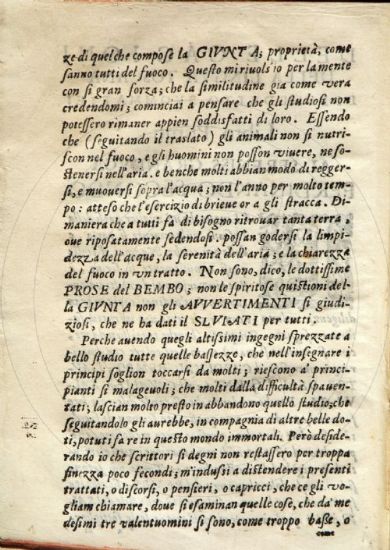 ze di quel che compose la GIVNTA; proprietà, come
sanno tutti del fuoco. Questo mi riuolsio per la mente
con si gran forza; che la similitudine gia come vera
credendomi; cominciai a pensare che gli studiosi non
potessero rimaner appien soddisfatti di loro. Essendo
che (seguitando il traslato) gli animali non si nutri-
scon nel fuoco, e gli huomini non posson viuere, ne so-
stenersi nell'aria. e benche molti abbian modo di regger-
si, e muouersi sopra l'acqua; non l'anno per molto tem-
po: atteso che l'esercizio di brieue or a gli stracca. Di-
maniera che a tutti fa di bisogno ritrouar tanta terra,
oue riposatamente sedendosi, possan godersi la limpi-
dezza dell'acque, la serenità dell'aria; e la chiarezza
del fuoco in vn tratto. Non sono, dico, le dottissime
PROSE del BEMBO; non le spiritose quistioni del-
la GIVNTA non gli AVVERTIMENTI si giudi-
ziosi, che ne ha dati il SLVIATI per tutti.
Perche auendo quegli altissimi ingegni sprezzate a
bello studio tutte quelle bassezze, che nell'insegnare i
principi soglion toccarsi da molti; riescono a' princi-
pianti si malageuoli; che molti dalla difficultà spauen-
tati; lascian molto presto in abbandono quello studio; che
seguitandolo gli aurebbe, in compagnia di altre belle do-
ti, potuti fa re in questo mondo immortali. Però deside-
rando io che scrittori si degni non restassero per troppa
finezza poco fecondi; m'indussi a distendere i presenti
trattati, o discorsi, o pensieri, o capricci, che ce gli vo-
gliam chiamare, doue si esaminan quelle cose, che da' me
desimi tre valentuomini si sono, come troppo basse, o
come